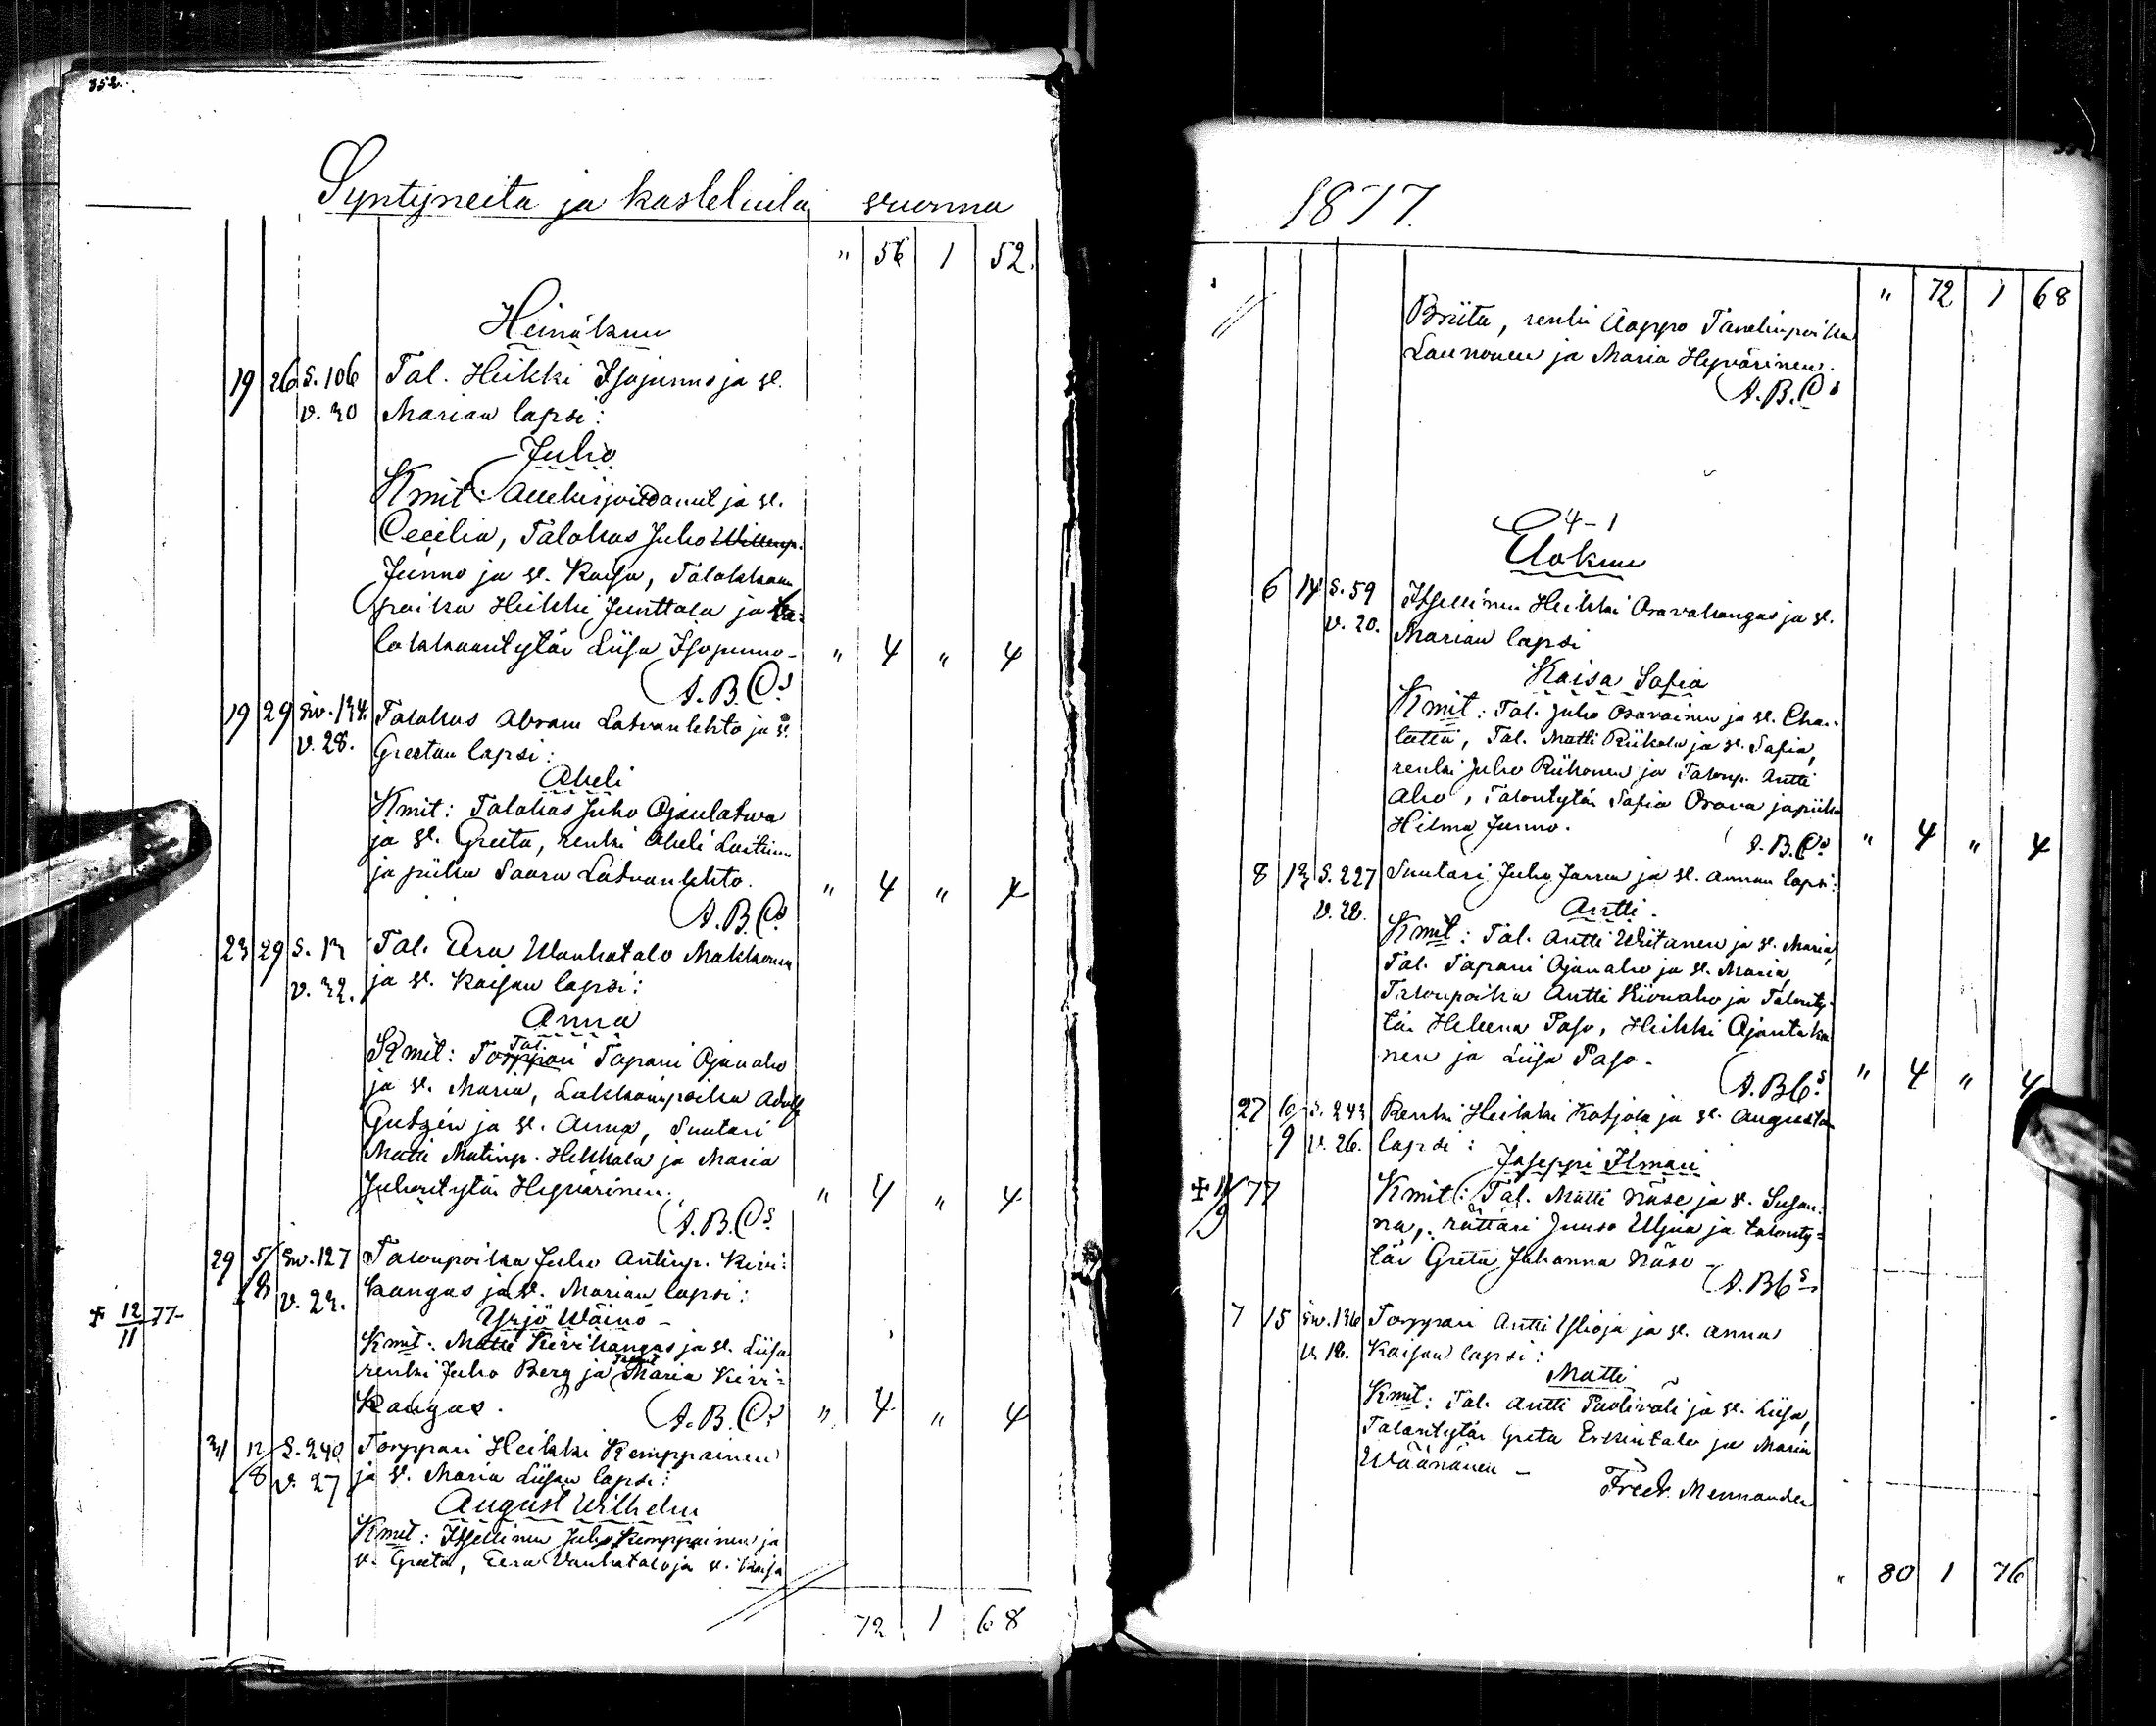 352.
Syntyneitä ja kastetuita vuonna
" 56 1 52.
Heinäkuu
19 26 S. 106 Tal. Heikki Isojunno ja v.
v. 30 Marian lapsi:
Juho
Kmit: Allekirjoittanut ja v.
Cecilia, Talokas Juho
Junno ja v. Kaisa, Talokkaan
poika Heikki Junttola ja ta=
lokkaantytär Liisa Isojunno - " 4 " 4
A.B.Cs
19 29 Siv. 134. Talokas Abram Latvanlehto ja v.
v. 28. Greetan lapsi:
Abeli
Kmit: Talokas Juho Ojanlatva
ja v. Greeta, renki Abeli
ja piika Saara Latvanlehto. " 4 " 4
A.B.Cs
23 29 S. 13 Tal. Eera Wanhatalo Makkonen
v. 32. ja v. Kaisan lapsi:
Anna
Tal.
Kmit: Torppari Tapani Ojanaho
ja v. Maria, Lukkarinpoika Adolf
ja v. Anna, Suutari
Matti Matinp. Heikkala ja Maria
Juhontytär Hyvärinen. " 4 " 4
A.B.Cs
29 5/8 Siv. 127 Talonpoika Juho Antinp. Kivi=
v. 23. kangas ja v. Marian lapsi:
+ 12/11 77- Yrjö Wäinö -
Kmit: Matti Kivikangas ja v. Liisa
renki Juho Berg ja Maria Kivi=
kangas. " 4 " 4
A.B.Cs
31 12/8 S. 240 Torppari Heikki Kemppainen
v. 27 ja v. Maria Liisan lapsi:
August Wilhelm
Kmit: Itsellinen Juho Kemppainen ja
v. Greeta, Eera Vanhatalo ja v. Kaisa
72 1 68
1877.
" 72 1 68
Briita, renki Aappo Tanelinpoika
Launonen ja Maria Hyvärinen.
A.B.Cs
4-1
Elokuu
6 14 S. 59 Itsellinen Heikki Oravakangas ja v.
v. 20. Marian lapsi
Kaisa Sofia
Kmit: Tal. Juho Oravainen ja v. Char=
lotta, Tal. Matti Riikola ja v. Sofia,
renki Juho Riihonen ja Talonp. Antti
Aho, Talontytär Sofia Orava ja piika
Hilma Junno. " 4 " 4
A.B.Cs
8 13 S. 227 Suutari Juho ja v. Annan lapsi:
v. 28. Antti.
Kmit: Tal. Antti Wiitanen ja v. Maria,
Tal. Tapani Ojanaho ja v. Maria,
Talonpoika Antti Kivenaho ja Talonty=
tär Helena Paso, Heikki Ojantaka=
nen ja Liisa Paso. " 4 " 4
A.B.Cs
27 6/9 S. 243 Renki Heikki Katjola ja v. Augusta
v. 26. lapsi:
Joseppi Ilmari
+ 11/9 77 Kmit: Tal. Matti Näse ja v. Susan=
na, räätäri Juuso Uljua ja talonty=
tär Greta Johanna Näse -
A.B.Cs
7 15 Siv. 136 Torppari Antti Ylioja ja v. Anna
v. 18. Kaisan lapsi:
Matti
Kmit: Tal. Antti Puoliväli ja v. Liisa,
Talontytär Greta Erkintalo ja Maria
Wäänänen -
Fredr. Mennander
" 80 1 76